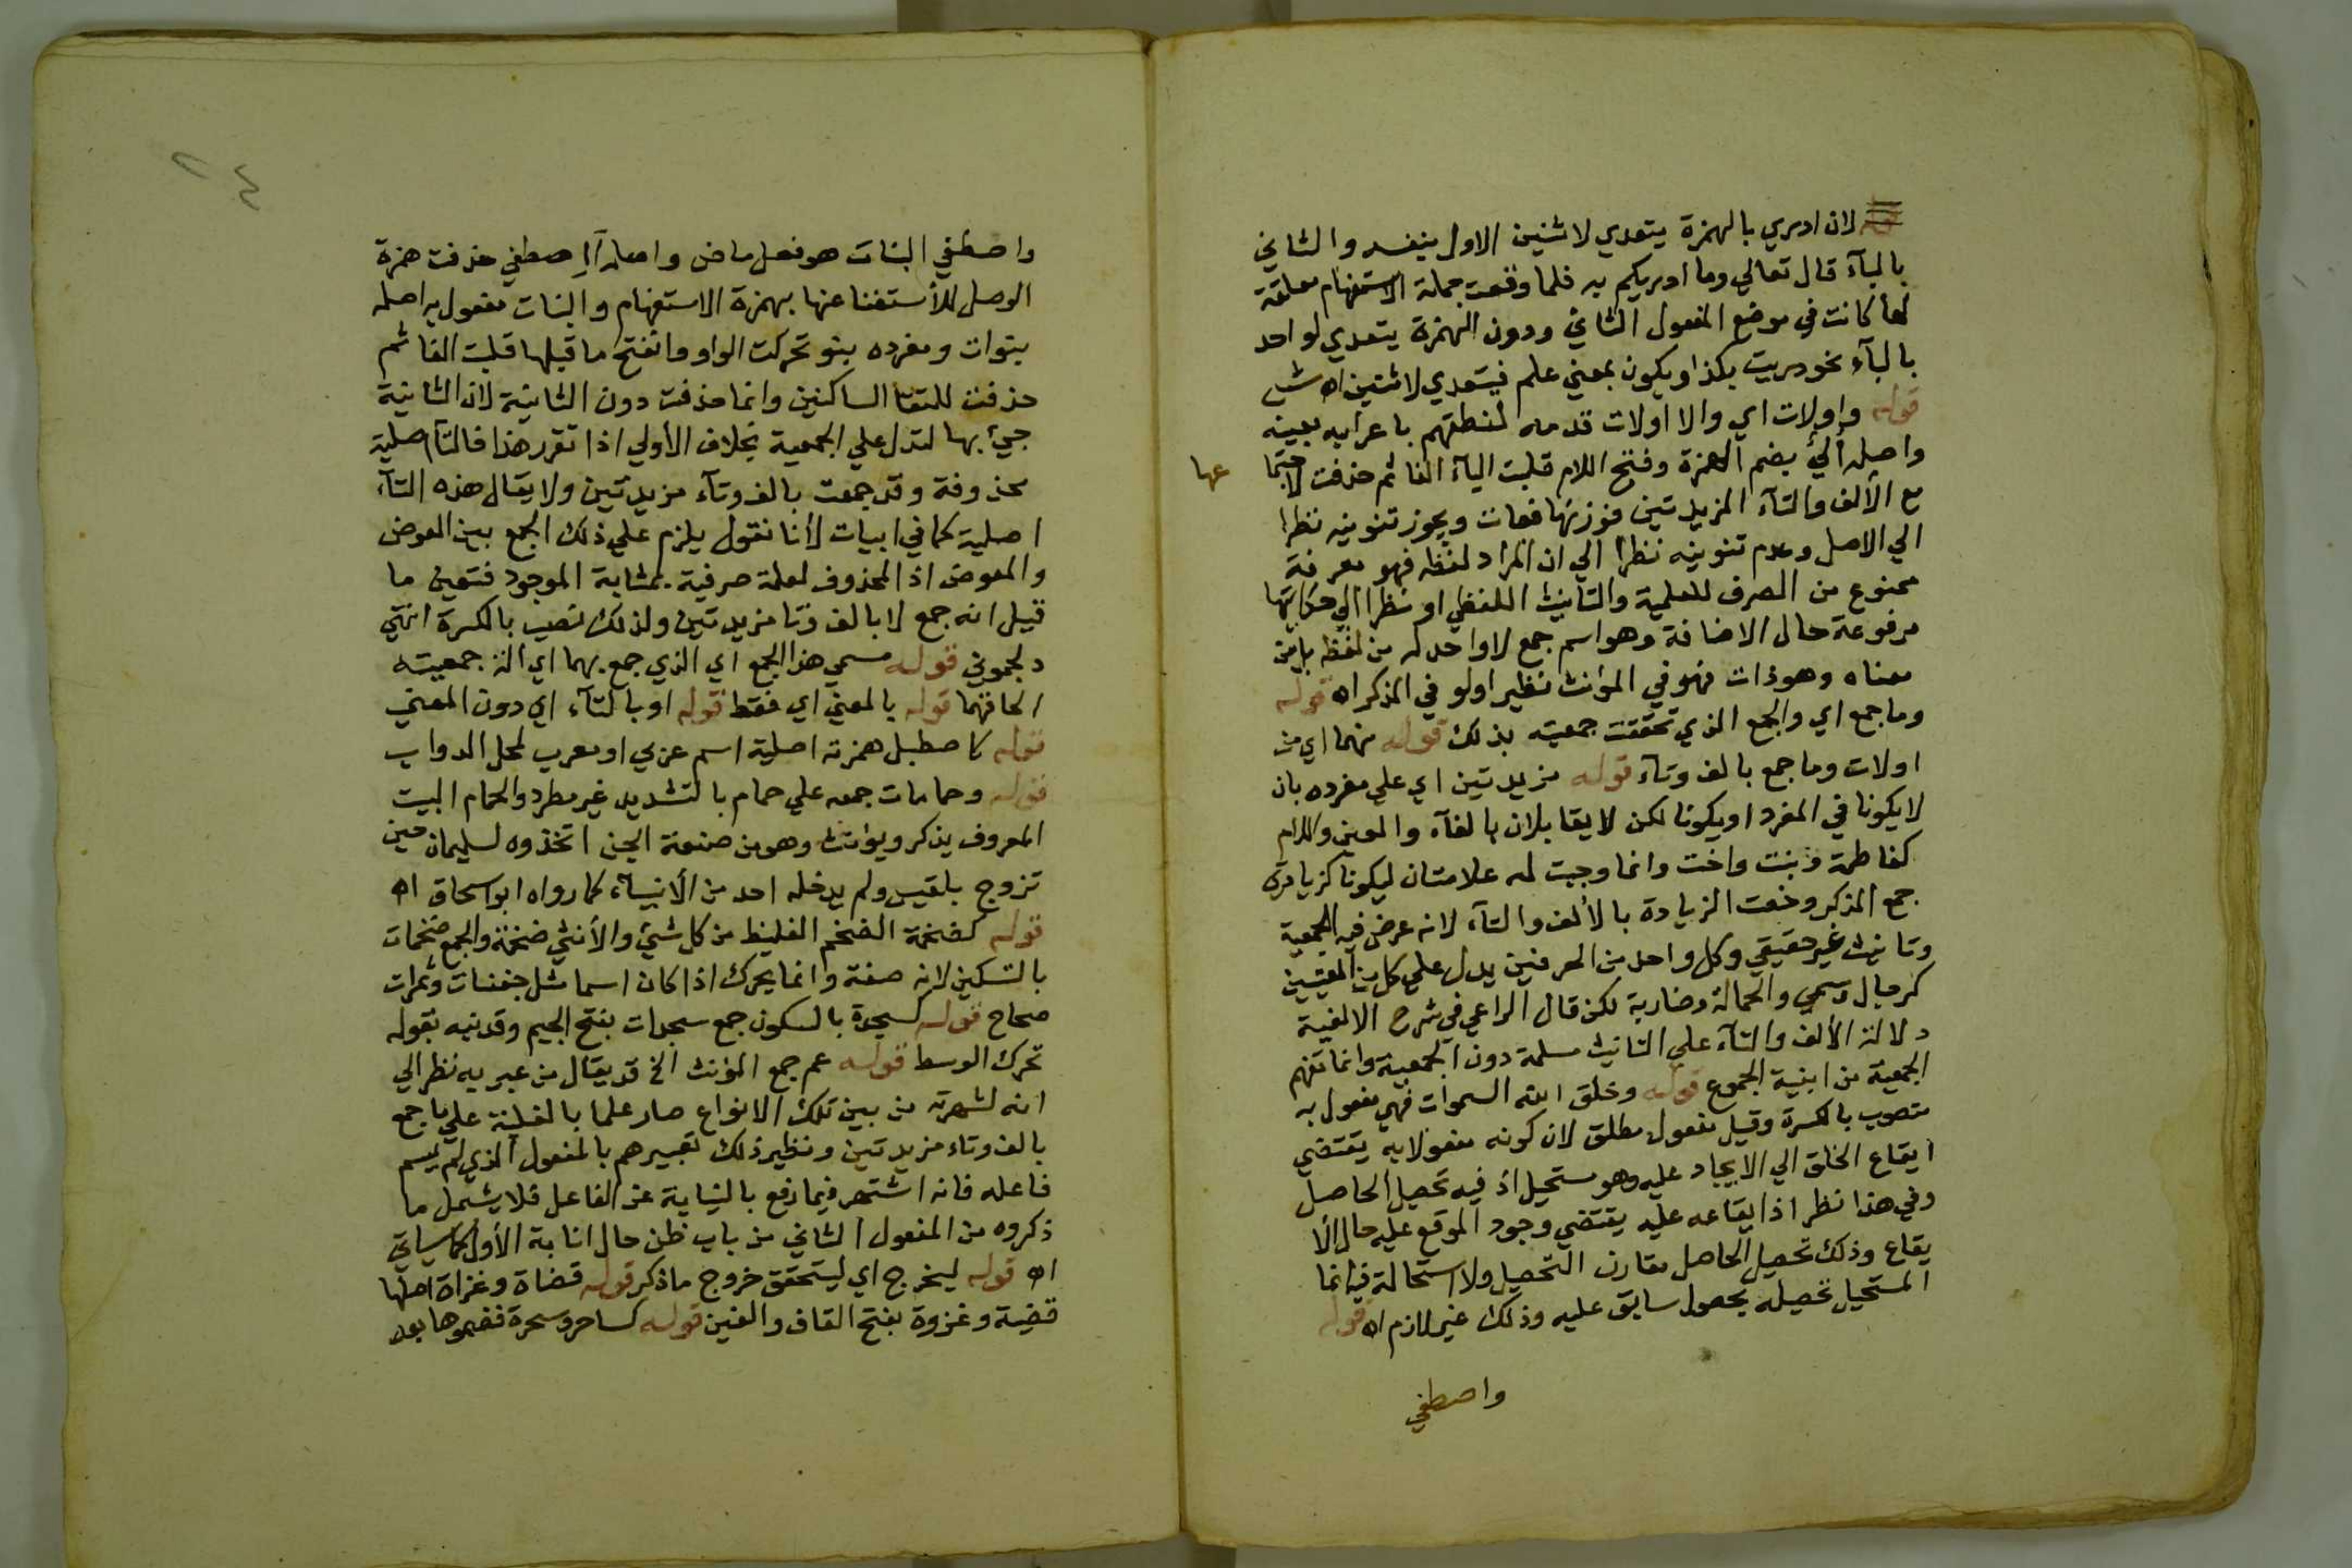 لان ادري بالهمزة يتعدي لاثنين الاول بنفسه والثاني
بالبآء قال تعالي وما ادريكم به فلما وقعت جملة الاستفهام معلقة
لها كانت في موضع المفعول الثاني ودون الهمزة يتعدي لواحد
بالبآء نحو دريت بكذا ويكون بمعني علم فيتعدي لاثنين اه ش
قوله واولات اي والا اولات قدمه لنطقهم باعرابه بعينه
واصله ألي بضم الهمزة وفتح اللام قلبت اليآء الفا ثم حذفت لاجتما
عها
مع الألف والتآء المزيدتين فوزنها فعات ويجوز تنوينه نظرا
الي الاصل وعدم تنوينه نظرا الي ان المراد لفظه فهو معرفة
ممنوع من الصرف للعلمية والتانيث اللفظي او نظرا الي حكايتها
مرفوعة حال الاضافة وهو اسم جمع لا واحد له من لفظه بل من
معناه وهو ذات فهو في المؤنث نظير اولو في المذكر اه قوله
وما جمع اي والجمع الذي تحققت جمعيته بذلك قوله منهما اي من
اولات وما جمع بالف وتآء قوله مزيدتين اي علي مفرده بان
لا يكونا في المفرد او يكونا لكن لا يقابلان بالفآء والعين واللام
كفاطمة وبنت واخت وانما وجبت له علامتان ليكونا كزيادتي
جمع المذكر وخصت الزيادة بالألف والتآء لانه عرض فيه الجمعية
وتانيث غير حقيقي وكل واحد من الحرفين يدل علي كل من المعنيين
كرجال وسمي والحمالة وضاربة لكن قال الراعي في شرح الالفية
دلالة الألف والتآء علي التانيث مسلمة دون الجمعية وانما تفهم
الجمعية من ابنية الجموع قوله وخلق الله السموات فهي مفعول به
منصوب بالكسرة وقيل مفعول مطلق لان كونه مفعولا به يقتضي
ايقاع الخلق الي الايجاد عليه وهو مستحيل اذ فيه تحصيل الحاصل
وفي هذا نظر اذ ايقاعه عليه يقتضي وجود الموقع عليه حال الأ
يقاع وذلك تحصيل الحاصل مقارن التحصيل ولا استحالة فيه انما
المستحيل تحصيله بحصول سابق عليه وذلك غير لازم اه قوله
واصطفي
واصطفي البنات هو فعل ماض واصله أإصطفي حذفت همزة
الوصل للأستغنا عنها بهمزة الاستفهام والبنات مفعول به اصله
بنوات ومفرده بنو تحركت الواو وانفتح ما قبلها قلبت الفا ثم
حذفت للتقا الساكنين وانما حذفت دون الثانية لان الثانية
جيئ بها لتدل علي الجمعية بخلاف الأولي اذا تقرر هذا فالتآ اصلية
محذوفة وقد جمعت بالف وتآء مزيدتين ولا يقال هذه التآء
اصلية كما في ابيات لأنا نقول يلزم علي ذلك الجمع بين العوض
والمعوض اذ المحذوف لعلة صرفية بمثابة الموجود فتعين ما
قيل انه جمع لا بالف وتا مزيدتين ولذلك نصب بالكسرة انتهي
دلجموني قوله مسمي هذا الجمع اي الذي جمع بهما اي الة جمعيته
الحاقهما قوله بالمعني اي فقط قوله او بالتآء اي دون المعني
قوله كاصطبل همزته اصلية اسم عربي او معرب لمحل الدواب
قوله وحمامات جمعه علي حمام بالتشديد غير مطرد والحمام البيت
المعروف يذكر ويؤنث وهو من صنعة الجن اتخذوه لسليمان حين
تزوج بلقيس ولم يدخله احد من الأنبيآء كما رواه ابو اسحاق اه
قوله كضخمة الضخم الغليظ من كل شيئ والأنثي ضخمة والجمع ضخمات
بالتسكين لانه صفة وانما يحرك اذا كان اسما مثل جفنات وثمرات
صحاح قوله كسجدة بالسكون جمع سجدات بفتح الجيم وقد نبه بقوله
تحرك الوسط قوله عم جمع المؤنث الخ قد يقال من عبر به نظر الي
انه لشهرته من بين تلك الانواع صار علما بالغلبة علي ما جمع
بالف وتاء مزيدتين ونظير ذلك تعبيرهم بالمفعول الذي لم يسم
فاعله فانه اشتهر فيما رفع بالنيابة عن الفاعل فلا يشمل ما
ذكروه من المفعول الثاني من باب ظن حال انابة الأول كما سيأتي
اه قوله ليخرج اي ليتحقق خروج ما ذكر قوله قضاة وغزاة اصلها
قضية وغزوة بفتح القاف والغين قوله كساحر وسحرة فضموها بعد